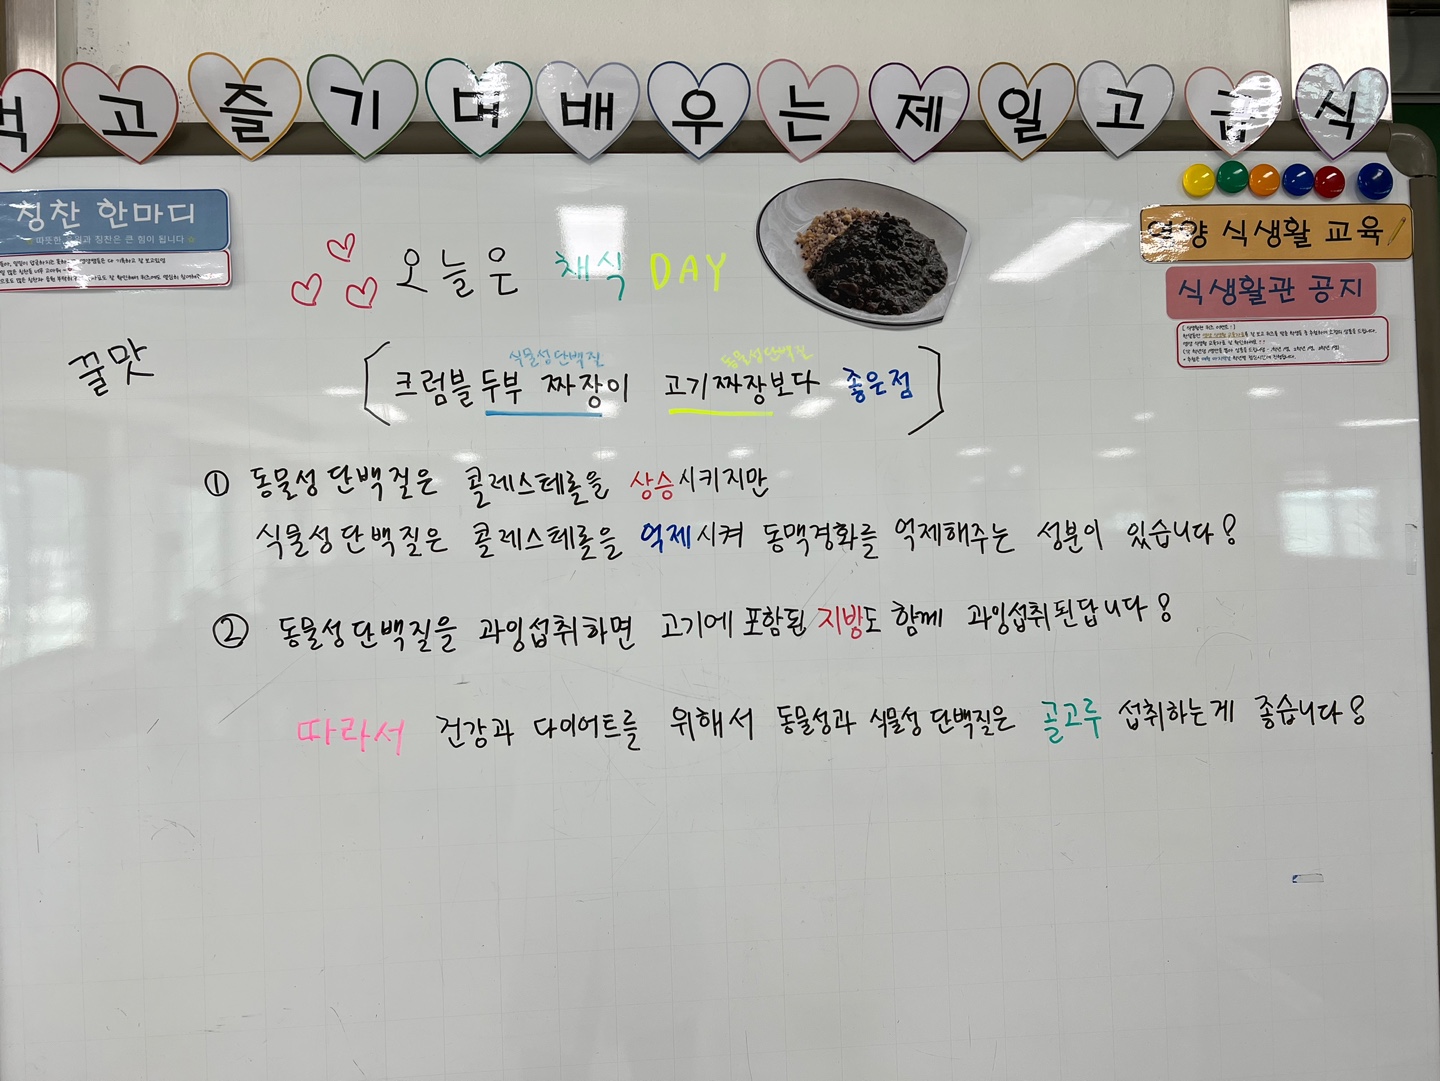 먹고 즐기며 배우는 제일고 급식
칭찬 한마디
영양 식생활 교육
식생활관 공지
오늘은 채식 DAY
꿀맛
식물성단백질 동물성단백질
크럼블두부 짜장이 고기짜장보다 좋은점
① 동물성단백질은 콜레스테롤을 상승시키지만
식물성단백질은 콜레스테롤을 억제시켜 동맥경화를 억제해주는 성분이 있습니다!
② 동물성단백질을 과잉섭취하면 고기에 포함된 지방도 함께 과잉섭취된답니다!
따라서 건강과 다이어트를 위해서 동물성과 식물성 단백질은 골고루 섭취하는게 좋습니다!